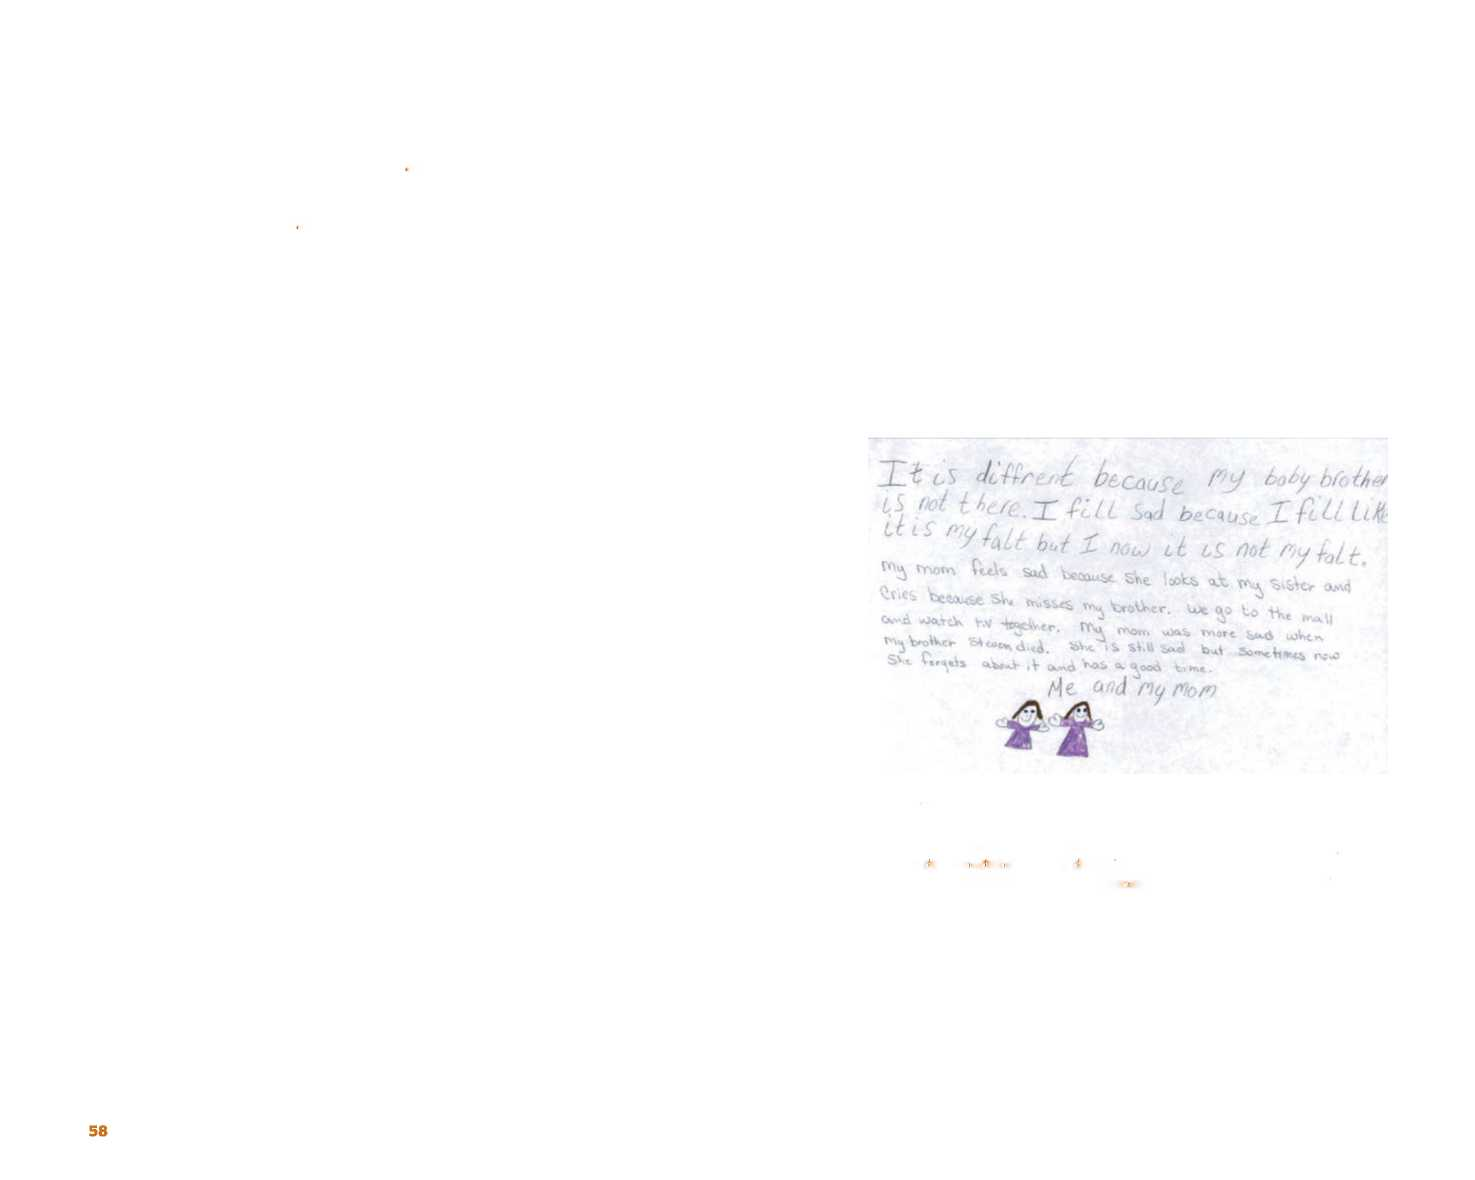 It is diffrent because my baby brother
is not there. I fill sad because I fill like
it is my falt but I now it is not my falt.
my mom feels sad because she looks at my sister and
cries because she misses my brother. we go to the mall
and watch t.v together. my mom was more sad when
my brother Steven died. She is still sad but sometimes now
She forgets about it and has a good time.
Me and my mom
58